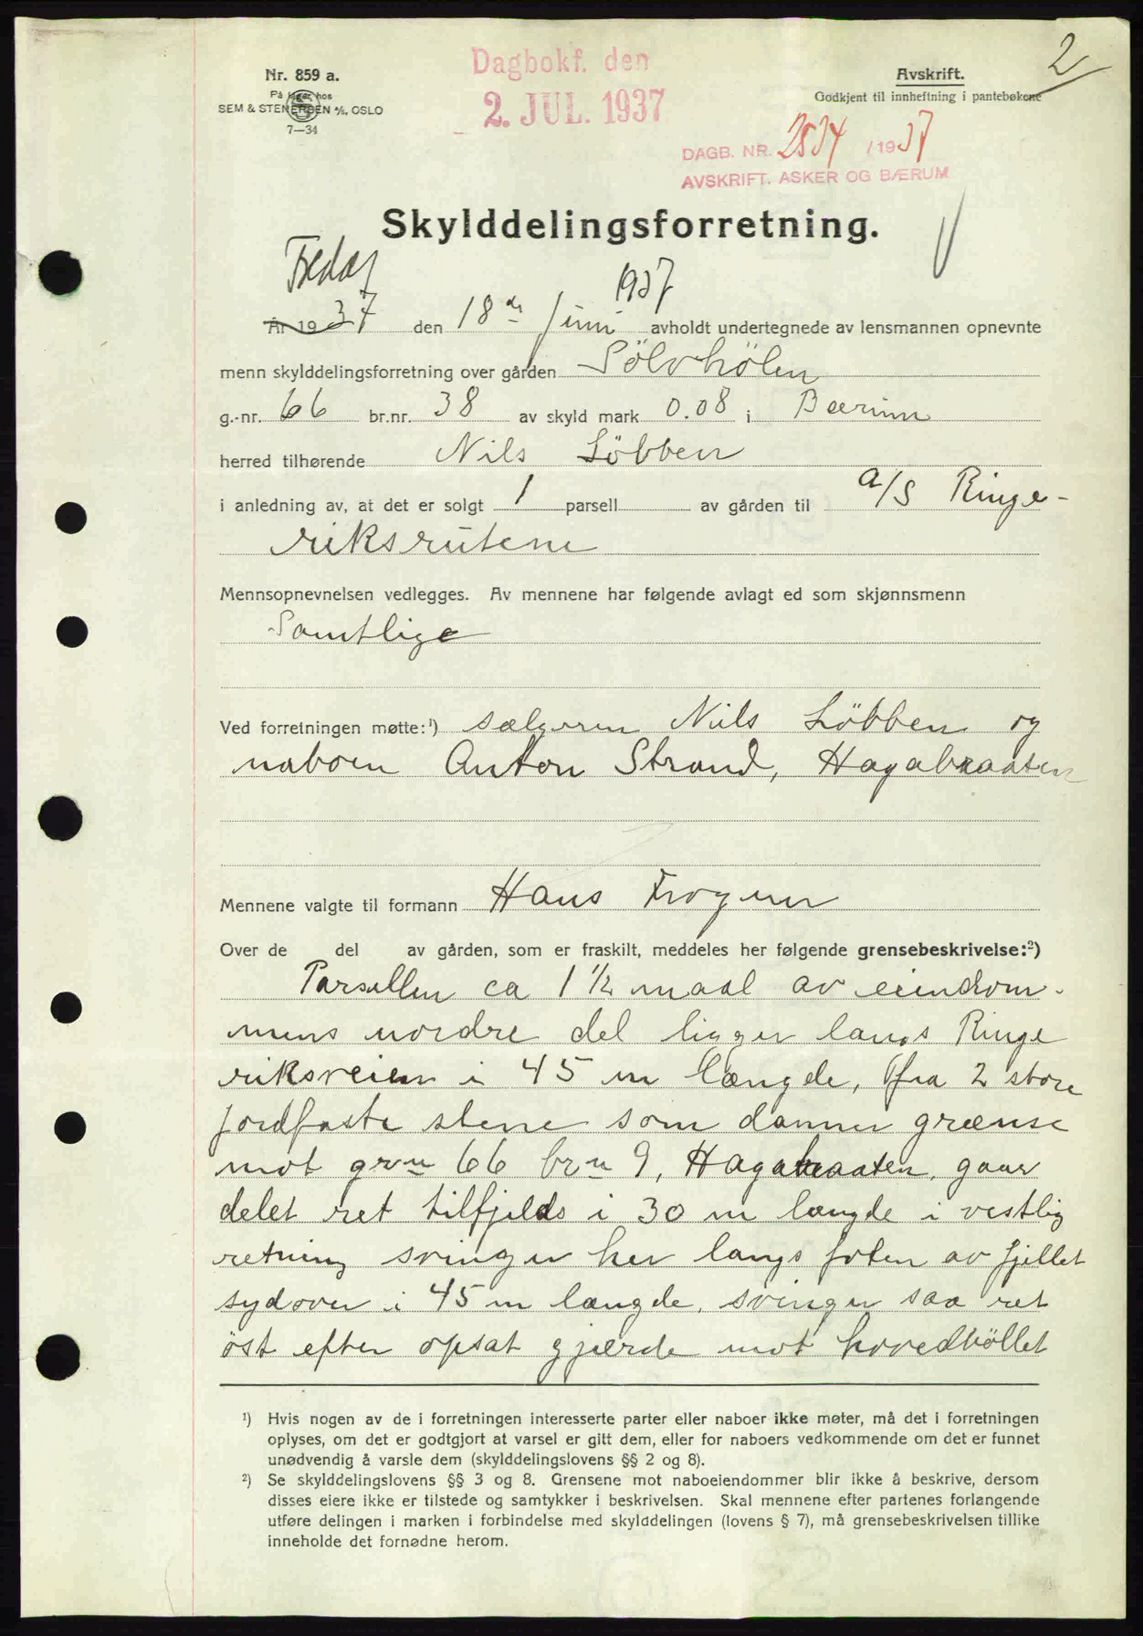 2
Nr. 859 a.
På lager hos
SEM & STENERSEN A/S, OSLO
7—34
Dagbokf. den
2. JUL. 1937
Avskrift.
Godkjent til innheftning i pantebøkene
DAGB. NR. 2534 /1937
AVSKRIFT. ASKER OG BÆRUM
Skylddelingsforretning.
Fredag 1937
År 1937 den 18de Juni avholdt undertegnede av lensmannen opnevnte
menn skylddelingsforretning over gården Sölvhölen
g.-nr. 66 br.nr. 38 av skyld mark 0.08 i Bærum
herred tilhørende Nils Löbben
i anledning av, at det er solgt 1 parsell av gården til A/S Ringe-
riksrutene
Mennsopnevnelsen vedlegges. Av mennene har følgende avlagt ed som skjønnsmenn
Samtlige
Ved forretningen møtte:¹) sælgeren Nils Löbben og
naboen Anton Strand, Hagabraaten
Mennene valgte til formann Hans Frogner
Over de del av gården, som er fraskilt, meddeles her følgende grensebeskrivelse:²)
Parsellen ca 1 1/2 maal av eiendom-
mens nordre del ligger langs Ringe
riksveien i 45 m længde, fra 2 store
jordfaste stene som danner grænse
mot grn 66 brn 9, Hagabraaten, gaar
delet ret tilfjelds i 30 m længde i vestlig
retning svinger her langs foten av fjellet
sydover i 45 m længde, svinger saa ret
öst efter opsat gjærde mot hovedböllet
¹) Hvis nogen av de i forretningen interesserte parter eller naboer ikke møter, må det i forretningen
oplyses, om det er godtgjort at varsel er gitt dem, eller for naboers vedkommende om det er funnet
unødvendig å varsle dem (skylddelingslovens §§ 2 og 8).
²) Se skylddelingslovens §§ 3 og 8. Grensene mot naboeiendommer blir ikke å beskrive, dersom
disses eiere ikke er tilstede og samtykker i beskrivelsen. Skal mennene efter partenes forlangende
utføre delingen i marken i forbindelse med skylddelingen (lovens § 7), må grensebeskrivelsen tillike
inneholde det fornødne herom.